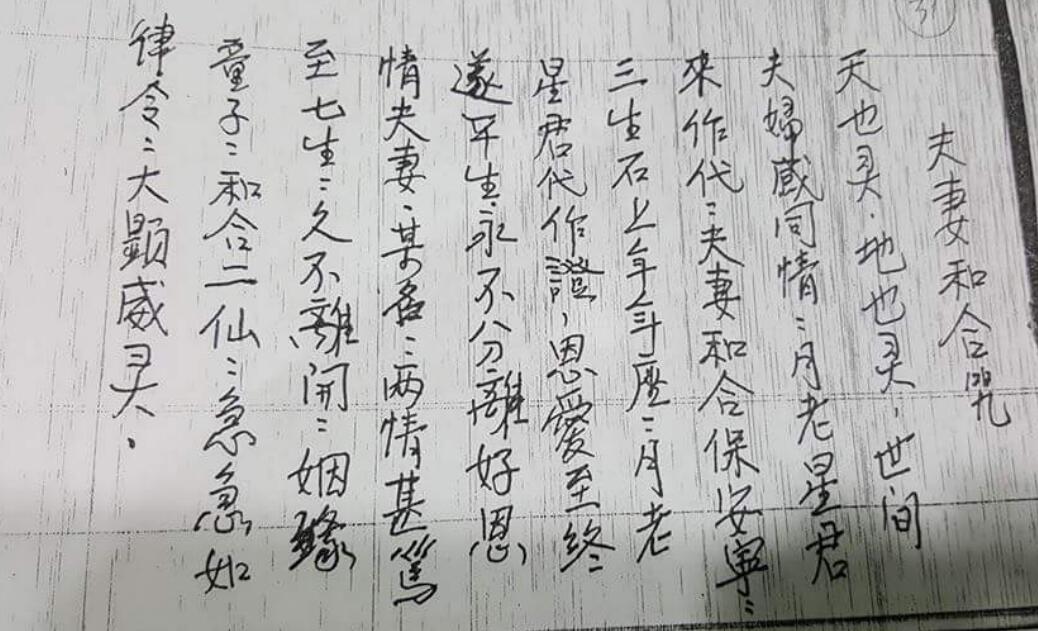 31
夫妻和合咒
天也灵.地也灵.世间
夫婦同情:月老星君
來作代:夫妻和合保安寧:
三生石上年年座:月老
星君代作證,恩愛至終:
遂平生.永不分離好恩
情夫妻.某名:両情甚篤
至七生:久不離開:姻緣
童子:和合二仙:急急如
律令:大顯威灵.